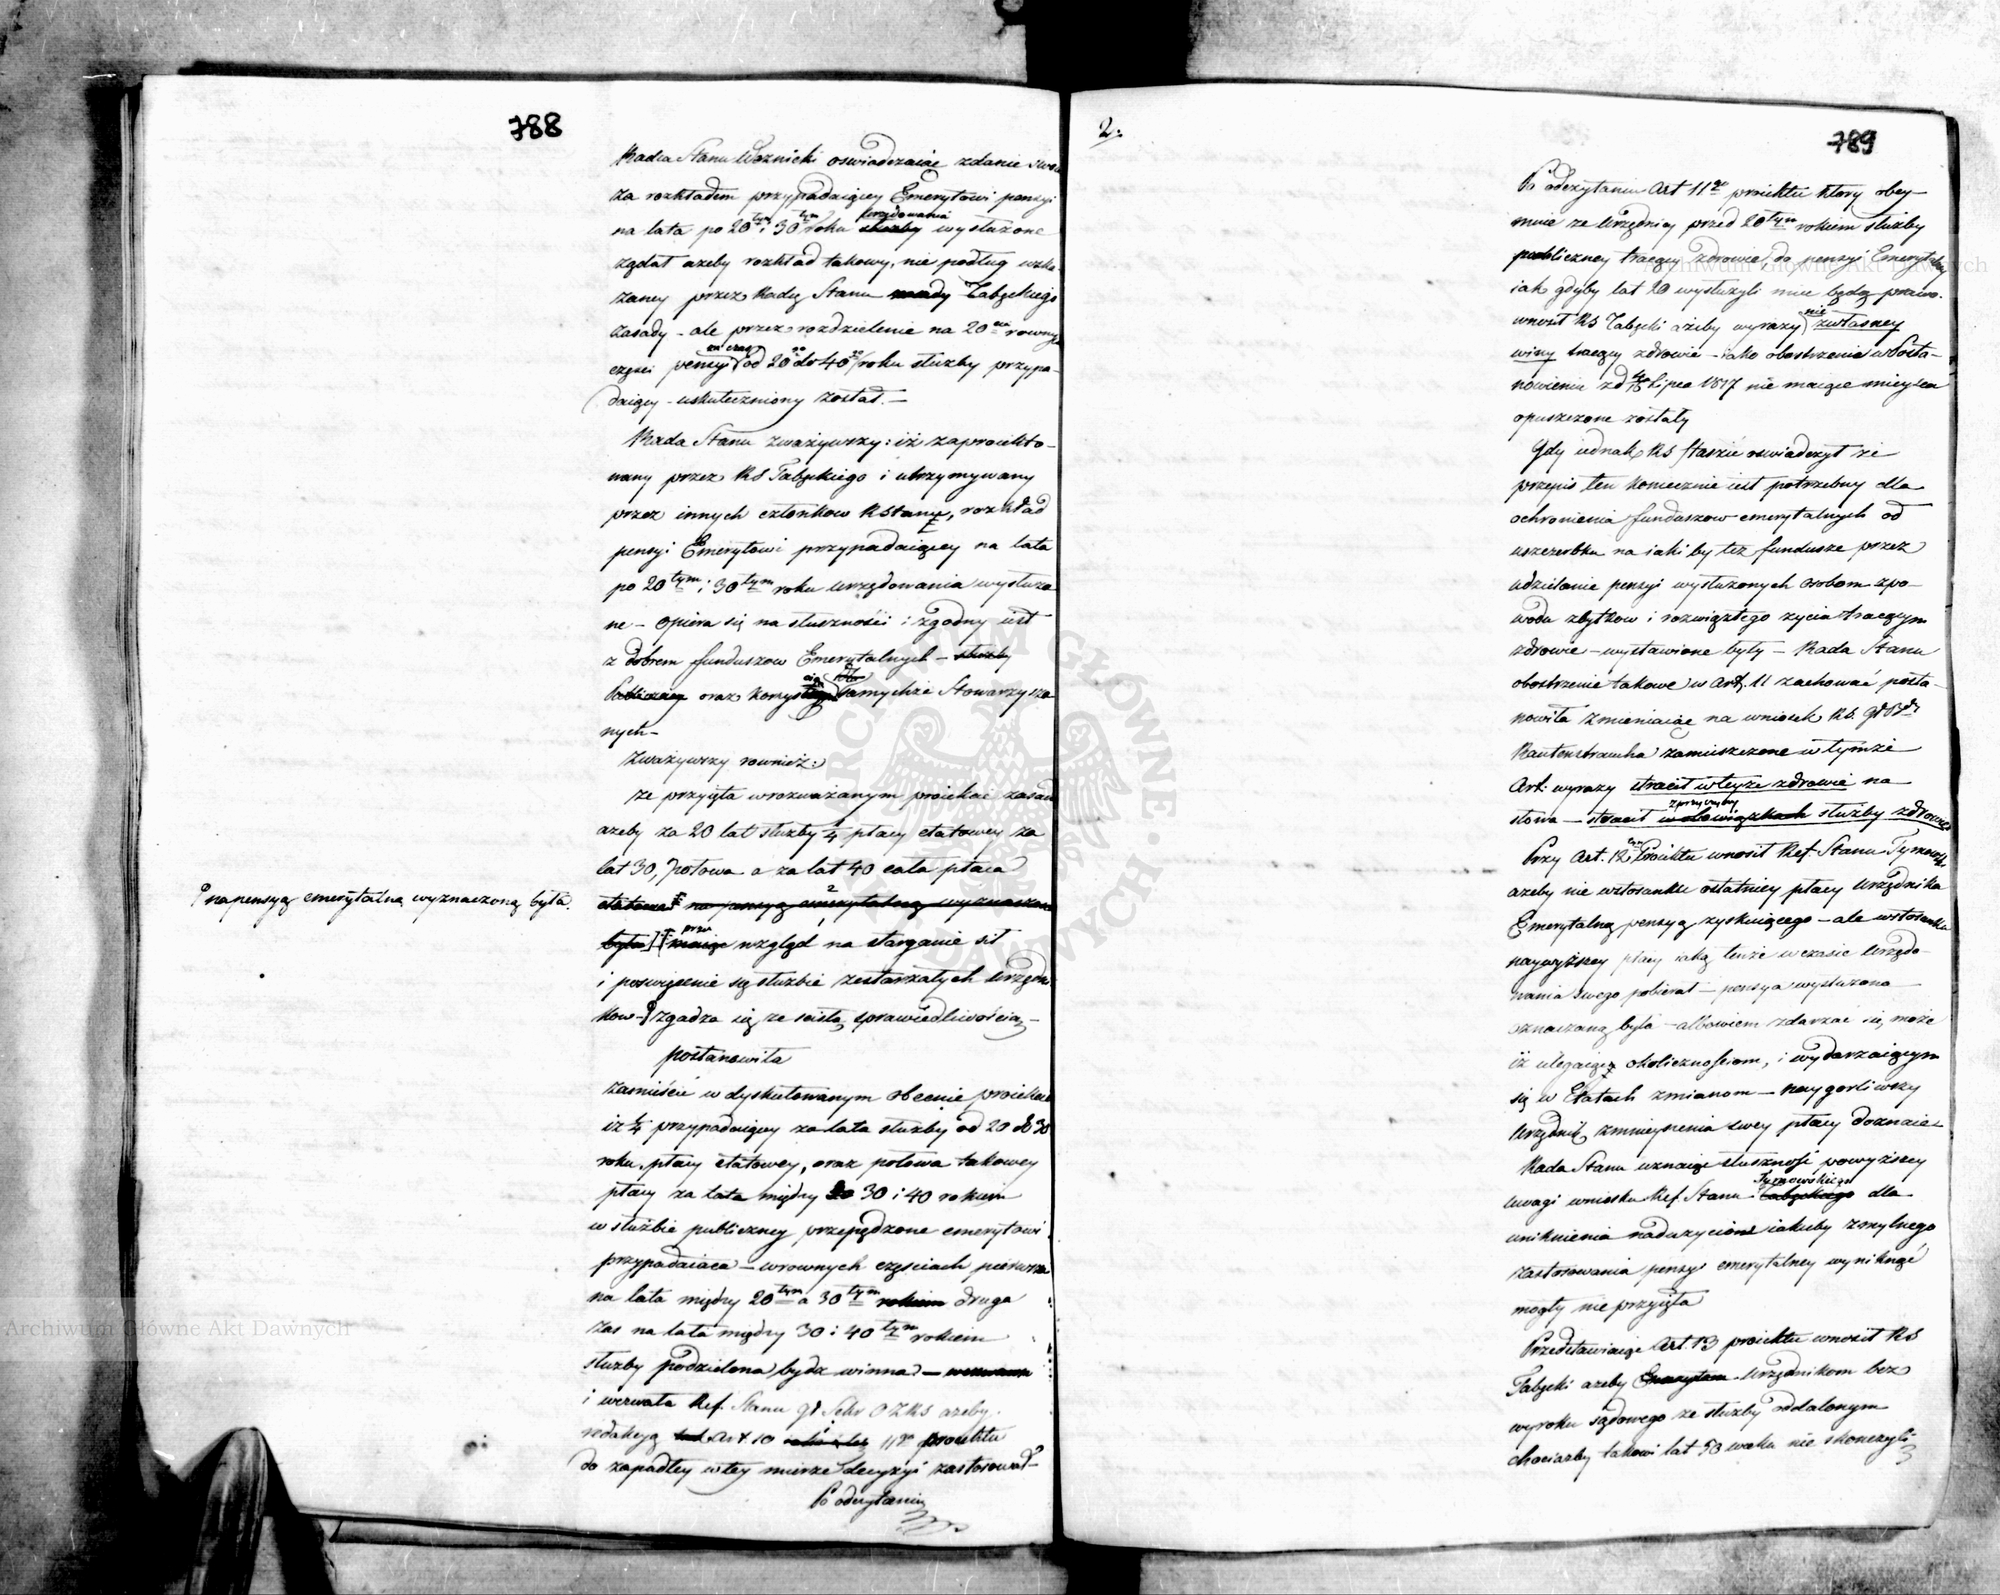 788
Radca Stanu Woznicki oswiadczaiąc zdanie swoie
za rozkładem przypadaiącey Emerytowi pensyi
na lata po 20tym i 30tym roku służby urzędowania wysłużone
żądał ażeby rozkład takowy, nie podług wska
zaney przez Radcę Stanu Tabęckiego
zasady – ale przez rozdzielenie na 20cia rownych
części pensyi za czas od 20go do 40go roku służby przypa-
daiącey – uskuteczniony został. –
Rada Stanu zważywszy: iż zaproiekto-
wany przez RS Tabęckiego i utrzymywany
przez innych członkow RStanu, rozkład
pensyi Emerytowi przypadaiącey na lata
po 20tym i 30tym roku urzędowania wysłużo
ne – opiera się na słusznośći i zgodny iest
z dobrem funduszow Emerytalnych – służby
Publiczney oraz tamychże Stowarzysza
nych –
Zważywszy rownież:
że przyięta w rozważanym proiekcie zasada
ażeby za 20 lat służby ¼ płacy etatowey za
lat 30, połowa a za lat 40 cała płaca
na pensyą emerytalną wyznaczoną była.
etatowa na pensyą emerytalną wyznaczona
była maiąc przez wzgląd na starganie sił
i poswięcenie się służbie zestarzałych Urzędni
kow – zgadza się ze scisłą sprawiedliwością –
postanowiła
zamieścić w dyskutowanym obecnie proiekcie
iż ¼ przypadaiącey za lata służby od 20 do 30
roku, płacy etatowey, oraz połowa takowey
płacy za lata między 30 i 40 rokiem
w służbie publiczney przepędzone emerytowi
przypadaiąca – w rownych częściach pierwsza
na lata między 20tym a 30tym rokiem druga
zas na lata między 30 i 40tym rokiem
służby podzielona bydz winna –
i wezwała Ref. Stanu gł Sekr OZRS ażeby
redakcyą Art 10 11go proiektu
do zapadłey w tey mierze decyzyi zastosował –
Po odczytaniu
2.
789
Po odczytaniu Art 11go proiektu ktory obey-
muie że Urzędnicy przed 20tym rokiem służby
publiczney tracący zdrowie, do pensyi Emerytalney
iak gdyby lat 20 wysłużyli mieć będą prawo.
wnosił RS Tabęcki ażeby wyrazy nie z własney
winy tracący zdrowie – iako obostrzenie w Posta-
nowieniu z d Lipca 1817 nie maiące mieysca
opuszczone zostały
Gdy iednak RS Staszic oswiadczył że
przepis ten koniecznie iest potrzebny dla
ochronienia funduszow emerytalnych od
uszczerbku na iaki by też fundusze przez
udzielanie pensyi wysłużonych osobom z po-
wodu zbytkow i rozwiązłego życia tracącym
zdrowie – wystawione były – Rada Stanu
obostrzenie takowe w Art. 11 zachować posta-
nowiła zmieniaiąc na wniosek RS.
Rautenstraucha zamieszczone w tymże
Art. wyrazy stracił w teyże zdrowie na
słowa – stracił z przyczyny w obowiązkach służby zdrowie
Przy Art. 12tym Proiektu wnosił Ref. Stanu Tymowski
ażeby nie w stosunku ostatniey płacy Urzędnika
Emerytalną pensyą zyskuiącego – ale w stosunku
naywyższey płacy iaką tenże w czasie Urzędo-
wania swego pobierał – pensya wysłużona
oznaczaną była – albowiem zdarzać się może
iż ulegaiąc okolicznościom, i wydarzaiącym
się w Etatach zmianom – naygorliwszy
Urzędnik zmnieyszenia swey płacy doznaie
Rada Stanu uznaiąc słuszność powyższey
uwagi wniosku Ref. Stanu Tymowskiego Tabęckiego dla
uniknienia nadużyciow iakieby z mylnego
zastosowania pensyi emerytalney wyniknąć
mogły nie przyięła
Przedstawiaiąc Art. 13 proiektu wnosił RS
Tabęcki ażeby Urzędnikom bez
wyroku sądowego ze służby oddalonym
chociażby takowi lat 50 wieku nie skonczyli